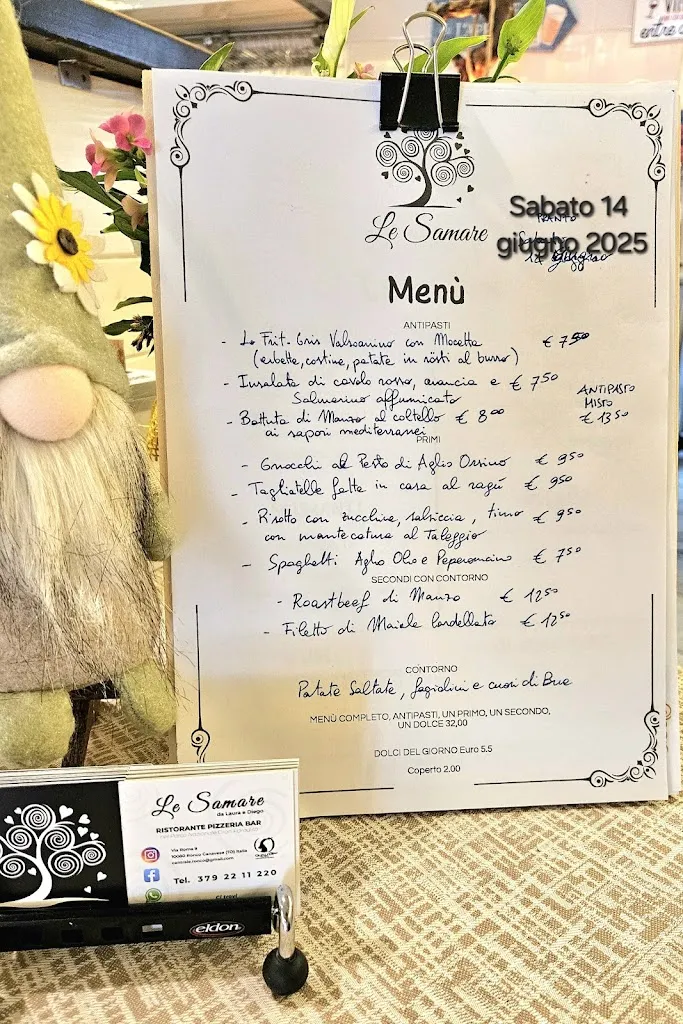 Le Samare
PRANTO
Sabato 14
giugno 2025
Menù
ANTIPASTI
- Lo Frit-Gris Valsoanino con Mocetta € 7⁵⁰
(erbette, costine, patate in rösti al burro)
- Insalata di cavolo rosso, arancia e € 7⁵⁰
Salmerino affumicato
- Battuta di Manzo al coltello € 8⁰⁰
ai sapori mediterranei
ANTIPASTO
MISTO
€ 13⁵⁰
PRIMI
- Gnocchi al Pesto di Aglio Orsino € 9⁵⁰
- Tagliatelle fatte in casa al ragù € 9⁵⁰
- Risotto con zucchine, salsiccia, timo € 9⁵⁰
con mantecatura al Taleggio
- Spaghetti Aglio Olio e Peperoncino € 7⁵⁰
SECONDI CON CONTORNO
- Roastbeef di Manzo € 12⁵⁰
- Filetto di Maiale lardellato € 12⁵⁰
CONTORNO
Patate Saltate, fagiolini e cuori di Bue
MENÙ COMPLETO, ANTIPASTI, UN PRIMO, UN SECONDO,
UN DOLCE 32,00
DOLCI DEL GIORNO Euro 5.5
Coperto 2.00
Le Samare
da Laura e Diego
RISTORANTE PIZZERIA BAR
Via Roma 8
10080 Ronco Canavese (TO) Italia
Tel. 379 22 11 220
eldon